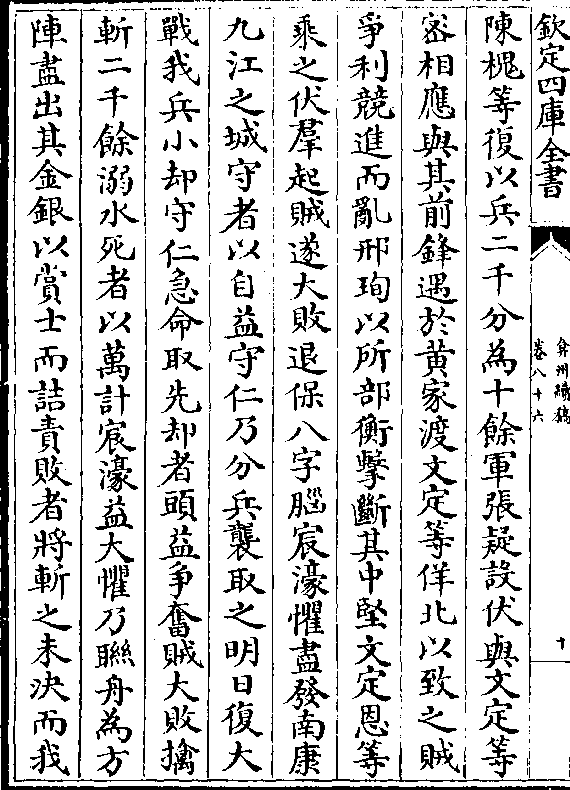 欽定四庫全書
弇州續稿
卷八十六
十
陳槐等復以兵二千分為十餘軍張疑設伏與文定等
宻相應與其前鋒遇於黄家渡文定等佯北以致之賊
爭利競進而亂邢珣以所部衡擊斷其中堅文定恩等
乘之伏羣起賊遂大敗退保八字腦宸濠懼盡發南康
九江之城守者以自益守仁乃分兵襲取之明日復大
戰我兵小却守仁急命取先却者頭益爭奮賊大敗擒
斬二千餘溺水死者以萬計宸濠益大懼乃聯舟為方
陣盡出其金銀以賞士而詰責敗者將斬之未決而我